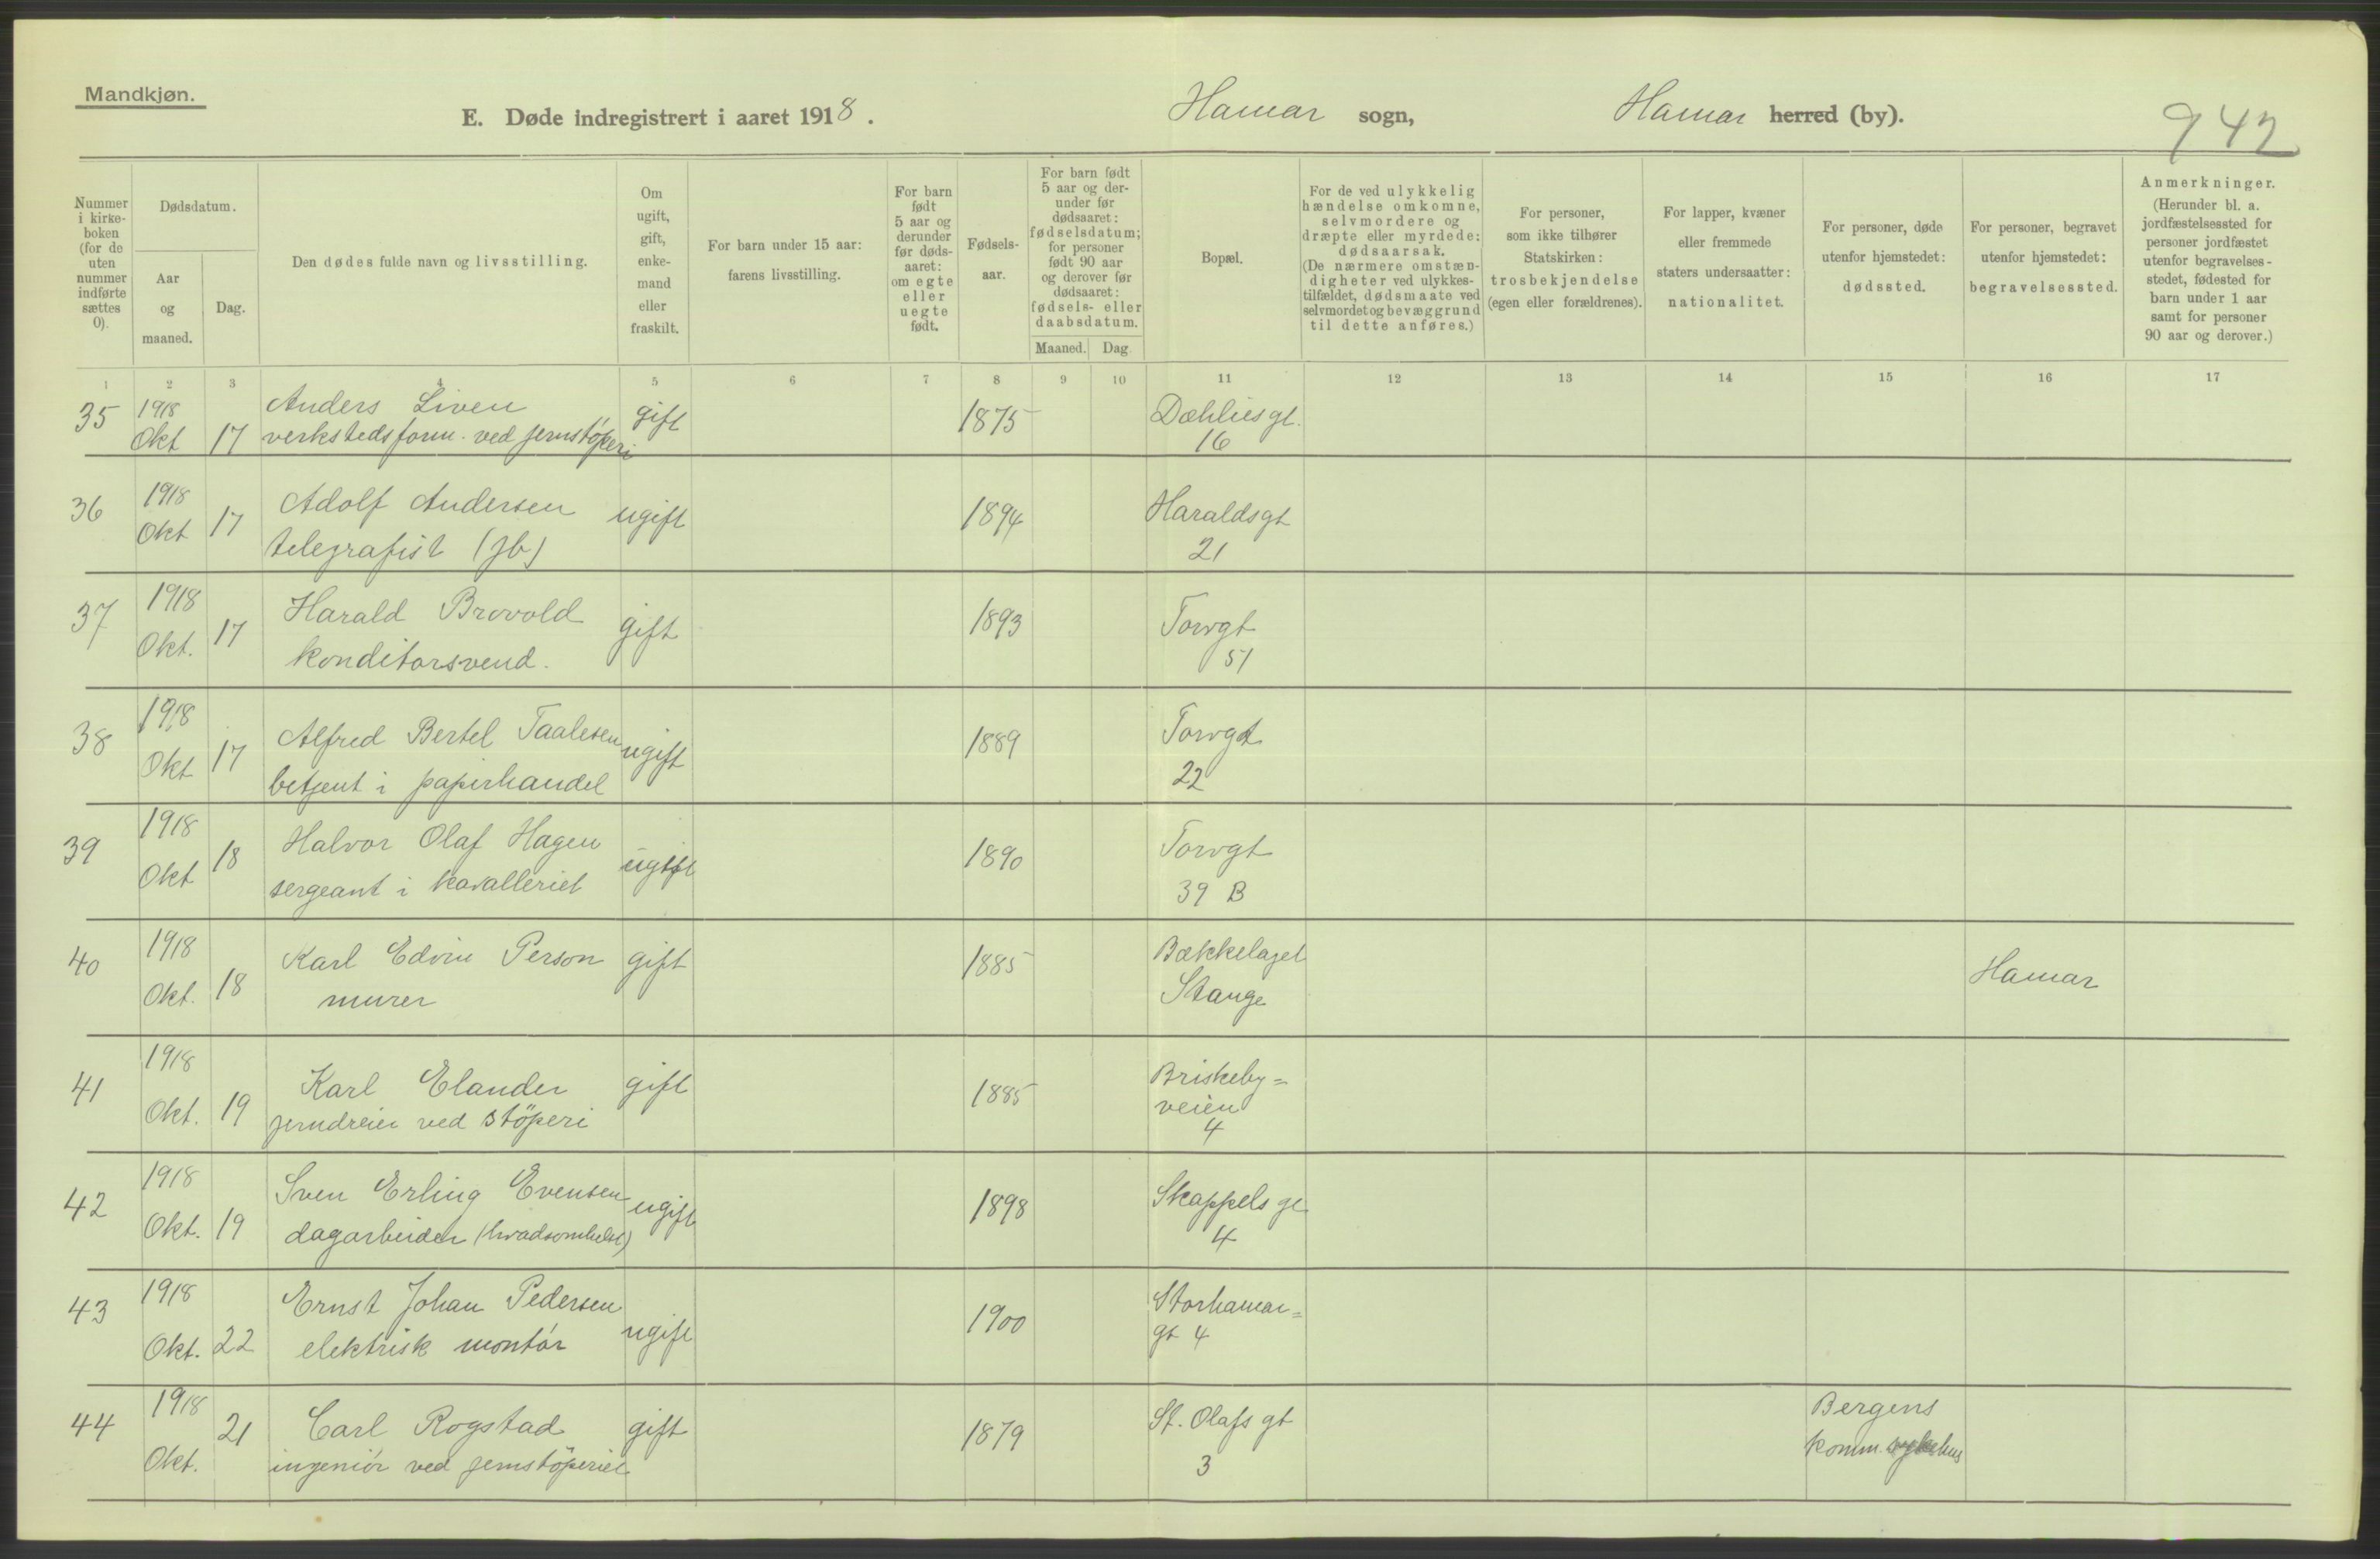 Mandkjøn.
E. Døde indregistrert i aaret 1918.
Hamar sogn,
Hamar herred (by).
942
Nummer i kirkeboken (for de uten nummer indførte sættes 0).
Dødsdatum.
Aar og maaned.
Dag.
Den dødes fulde navn og livsstilling.
Om ugift, gift, enkemand eller fraskilt.
For barn under 15 aar: farens livsstilling.
For barn født 5 aar og derunder før dødsaaret: om egte eller uegte født.
Fødselsaar.
For barn født 5 aar og derunder før dødsaaret: fødselsdatum; for personer født 90 aar og derover før dødsaaret: fødsels- eller daabsdatum.
Maaned.
Dag
Bopæl.
For de ved ulykkelig hændelse omkomne, selvmordere og dræpte eller myrdede: dødsaarsak. (De nærmere omstændigheter ved ulykkestilfældet, dødsmaate ved selvmordet og bevæggrund til dette anføres.)
For personer, som ikke tilhører Statskirken: trosbekjendelse (egen eller forældrenes).
For lapper, kvæner eller fremmede staters undersaatter: nationalitet.
For personer, døde utenfor hjemstedet: dødssted.
For personer, begravet utenfor hjemstedet: begravelsessted.
Anmerkninger. (Herunder bl. a. jordfæstelsessted for personer jordfæstet utenfor begravelsesstedet, fødested for barn under 1 aar samt for personer 90 aar og derover.)
1 2 3 4 5 6 7 8 9 10 11 12 13 14 15 16 17
35 1918 Okt 17 Anders Liven gift 1875 Dæhlies gt. 16
verkstedsform. ved jernstöperi
36 1918 Okt 17 Adolf Andersen ugift 1894 Haraldsgt 21
telegrafist (jb)
37 1918 Okt. 17 Harald Brovold gift 1893 Torvgt 51
konditorsvend.
38 1918 Okt 17 Alfred Bertel Taalesen ugift 1889 Torvgt 22
betjent i papirhandel
39 1918 Okt 18 Halvor Olaf Hagen ugift 1890 Torvgt 39 B
sergeant i kavalleriet
40 1918 Okt. 18 Karl Edvin Person gift 1885 Bækkelaget Stange Hamar
murer
41 1918 Okt. 19 Karl Elander gift 1885 Briskeby=veien 4
jerndreier ved stöperi
42 1918 Okt. 19 Sven Erling Evensen ugift 1898 Skappels gt 4
dagarbeider (hvadsomhelst)
43 1918 Okt. 22 Ernst Johan Pedersen ugift 1900 Storhamar=gt 4
elektrisk montór
44 1918 Okt. 21 Carl Rogstad gift 1879 St. Olafs gt 3 Bergens komm. sykehus
ingeniór ved jernstöperiet